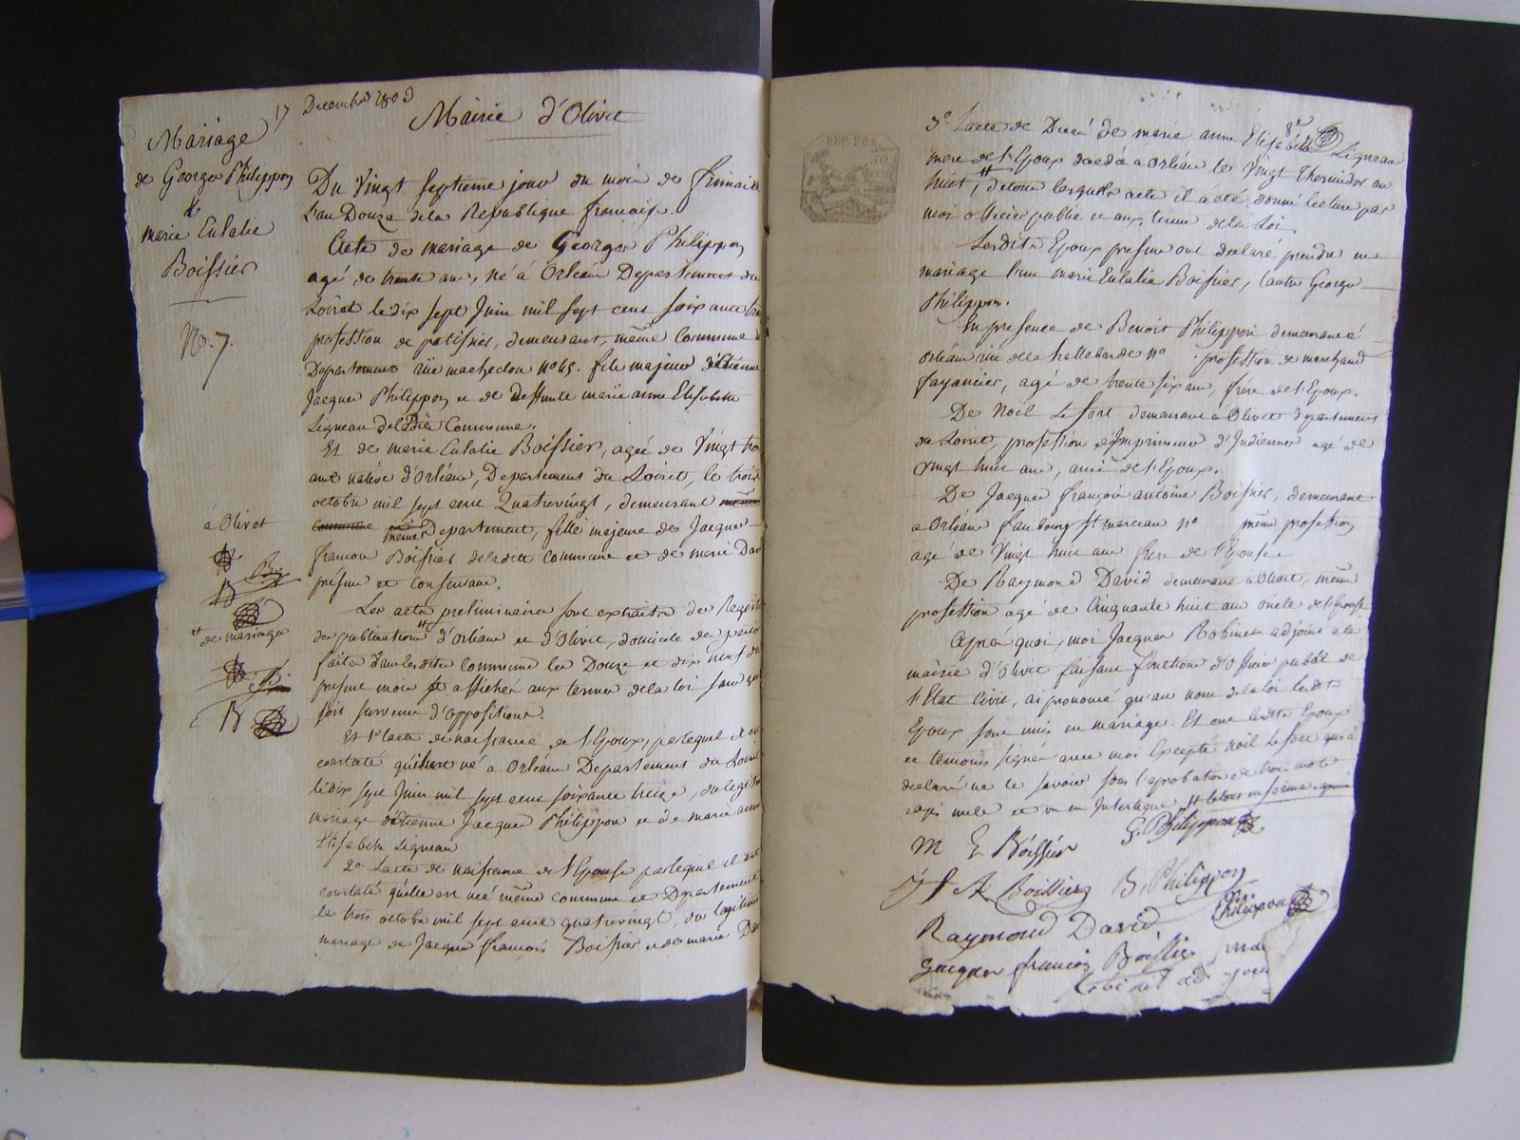 17 Decembre 1803
Mairie d'Olivet
Mariage
de George Philippon
&
marie Eulalie
Boissier
No. 7.
Du Vingt Septieme jour du mois de frimaire
L'an Douze de la Republique francaise.
Acte de mariage de George Philippon
agé de trente ans, né à Orléans Departement du
Loiret le dix Sept Juin mil Sept cent Soixante
profession de patissier, demeurant, même Commune
Departement rüe no 45. fils majeur d'étienne
Jacques Philippon et de deffunte marie anne Elisabeth
Ligneau de Commune.
Et de marie Eulalie Boissier, agée de Vingt trois
ans native d'Orléans, Departement du Loiret, le trois
octobre mil Sept cent Quatrevingt, demeurant même
à Olivet
Commune même Departement, fille majeure de Jacques
francois Boissier de la ditte commune et de marie Dav
présent et Consentant.
Les actes preliminaires sont extraits des Regist
de publications d'Orléans et d'Olivet, domicile des
de mariage
faites dans les dites communes les Douze et dix neuf du
present mois & affichés aux termes de la loi sans qu'il
soit survenu d'oppositions.
Et l'acte de naissance de l'Epoux, par lequel il est
constaté qu'il est né a Orléans Departement du Loiret
le dix sept Juin mil sept cent soixante treize, du legitime
mariage d'étienne Jacques Philippon et de marie anne
Elisabeth Ligneau
2o L'acte de naissance de l'Epouse par lequel il est
constaté qu'elle est née même commune et Departement
le trois octobre mil sept cent quatrevingt, du legitime
mariage de Jacques francois Boissier et de marie Dav
3o L'acte de Decès de marie anne Elisabeth Ligneau
mere de l'Epoux decedé a Orléans le Vingt Thermidor an
huit, de tous lesquels acte il a été donné lecture par
moi officier public et aux termes de la Loi.
Lesdits Epoux presents ont declaré prendre en
mariage l'un marie Eulalie Boissier, l'autre George
Philippon.
En presence de Benoit Philippon demeurant à
Orléans rüe de la hallebarde no profession de marchand
fayancier, agé de trente six ans, frere de l'Epoux.
De Noël Le fort demeurant a Olivet departement
du Loiret, profession d'Imprimeur d'Indiennes agé de
Vingt huit ans, ami de l'Epoux.
De Jacques françois antoine Boissier, demeurant
a Orléans faubourg St marceau no même profession
agé de Vingt huit ans frere de l'Epouse
De Raymond David demeurant a Olivet, même
profession agé de Cinquante huit ans oncle de l'Epouse
Après quoi, moi Jacques Robinet adjoint a la
mairie d'Olivet faisant fonctions d'Officier public de
l'Etat Civil, ai prononcé qu'au nom de la loi lesdits
Epoux sont unis en mariage. Et ont lesdits Epoux
et temoins signé avec moi Excepté noël Le fort qui a
declaré ne le savoir sous l'aprobation de trois mots
rayé nuls et un en Interligne
M E Boissier G. Philippon
J f A Boissier B. Philippon
Philippon
Raymond David
Jacques francois Boissier
Robinet adj